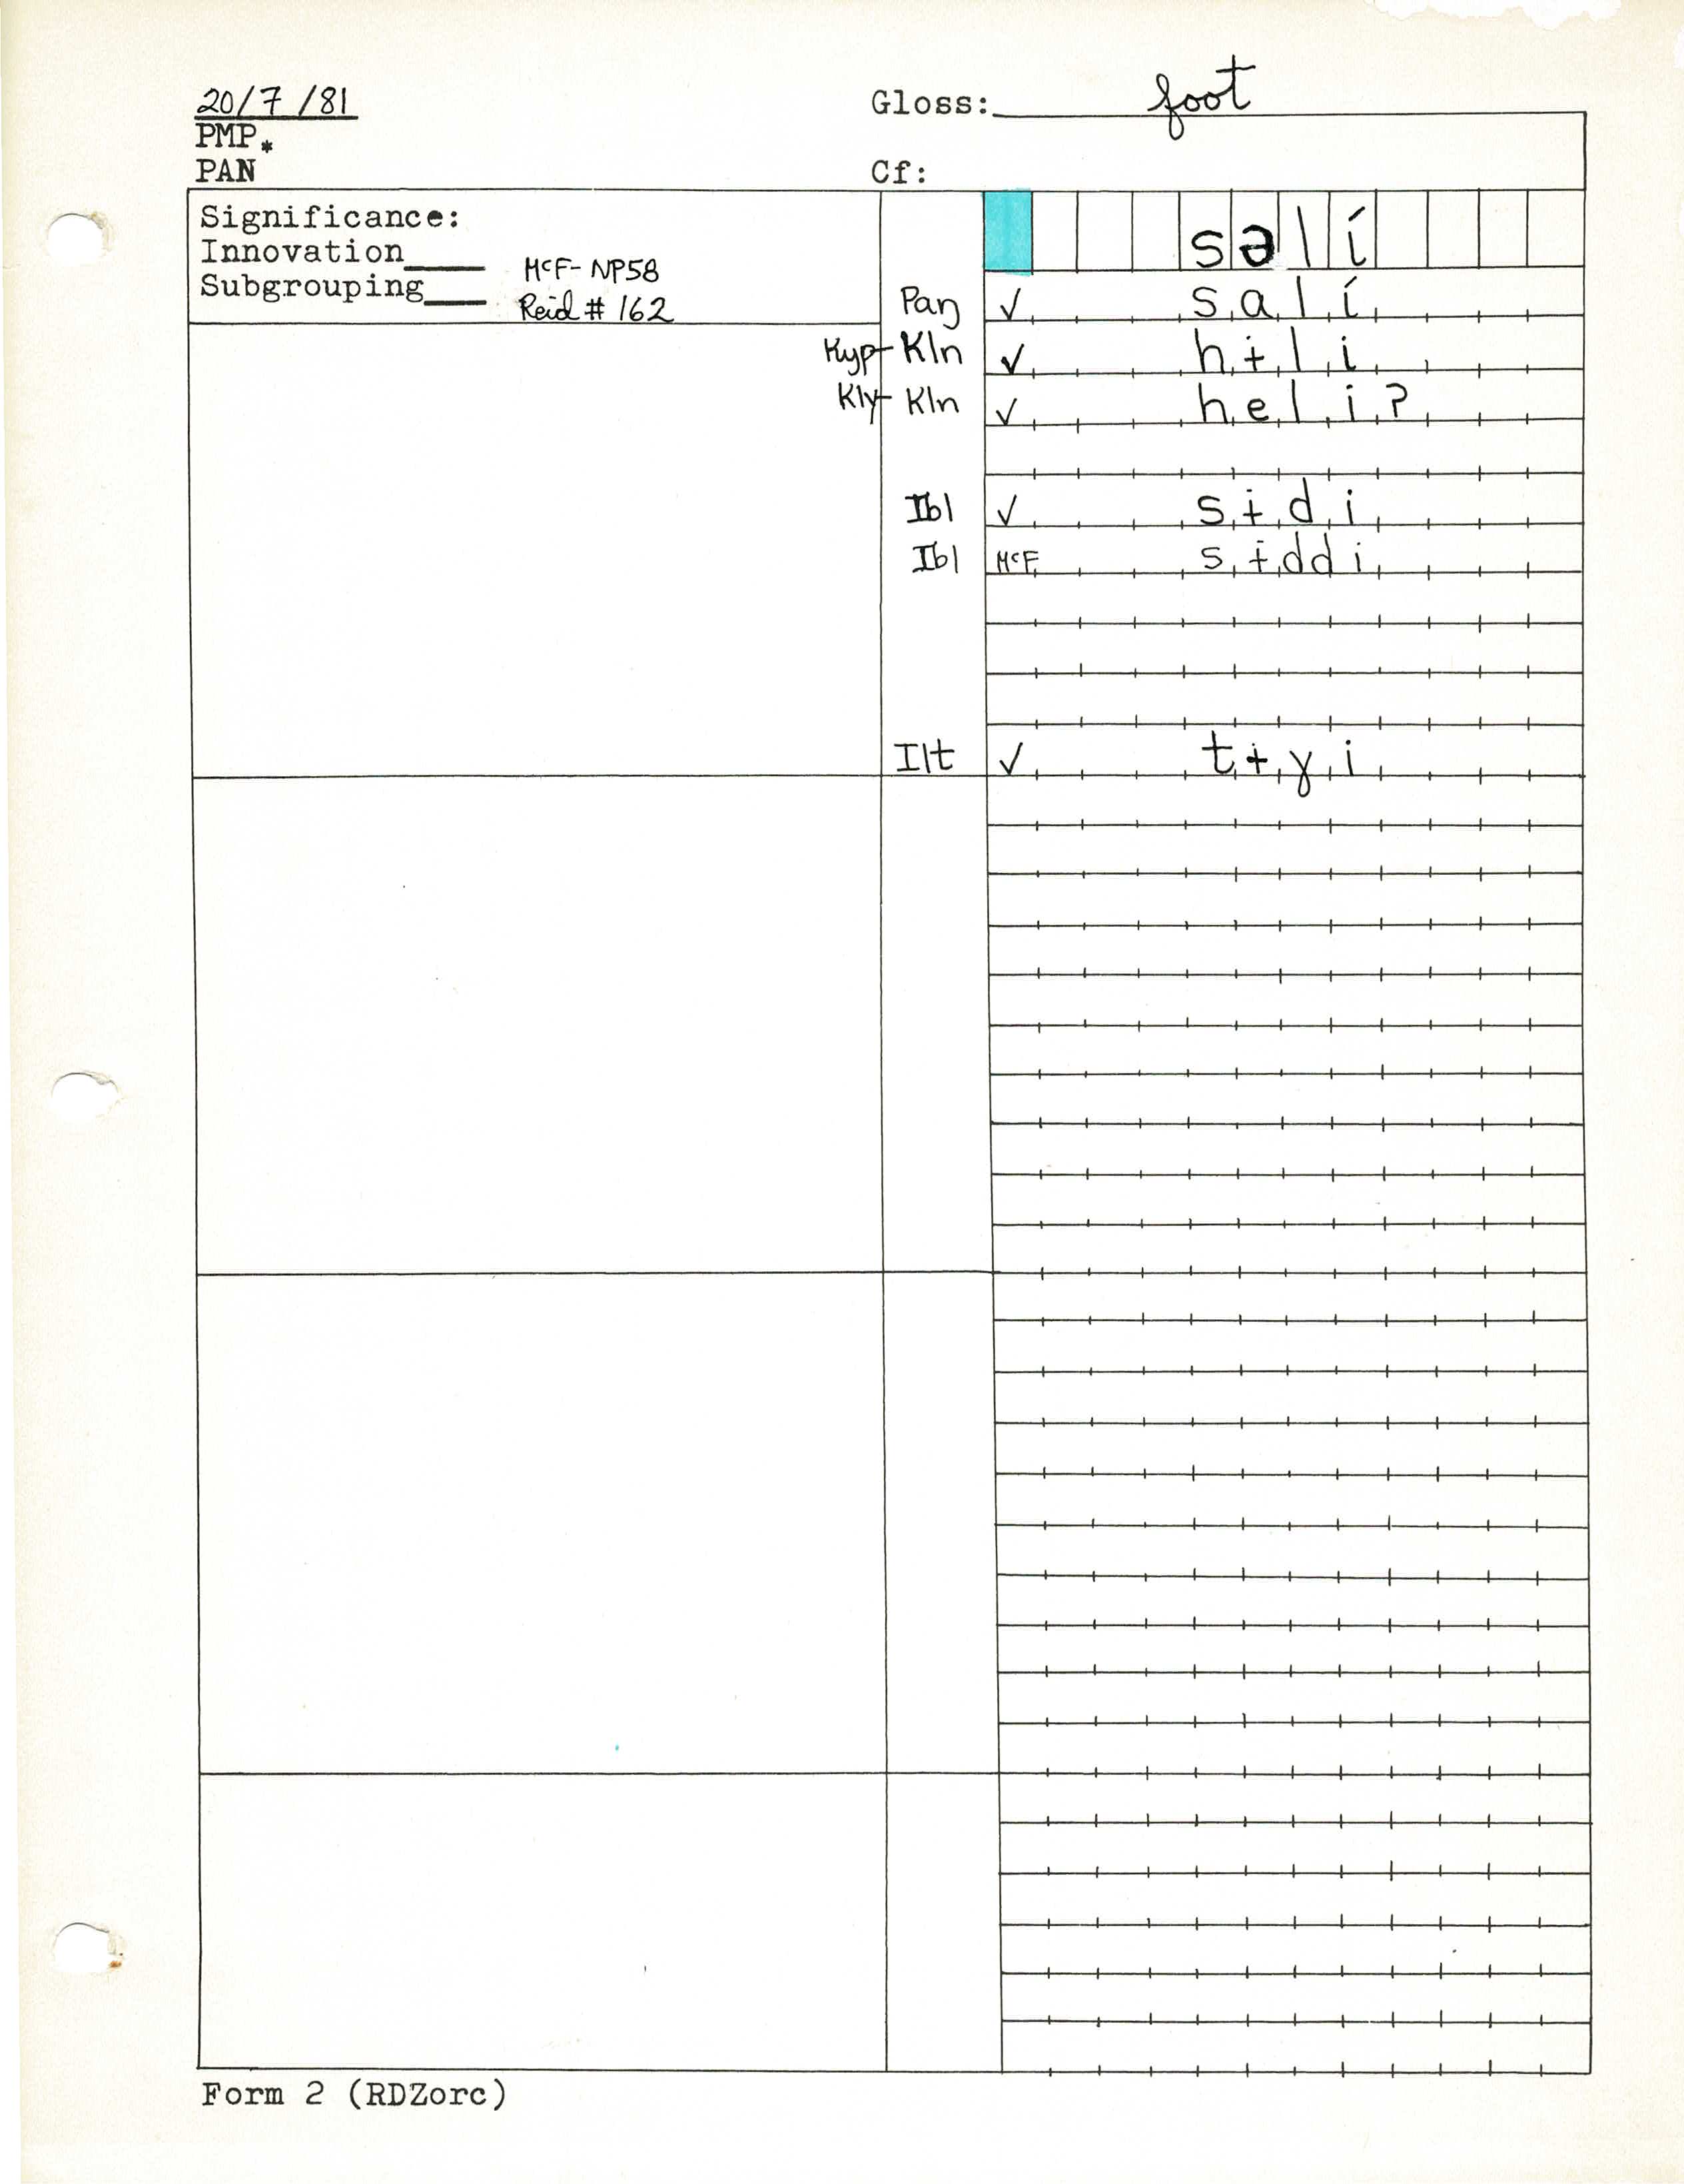 20/7/81 Gloss: foot
PMP*
PAN Cf:
Significance: səlí
Innovation____ McF-NP58
Subgrouping___ Reid # 162
Paŋ ✓ salí
Kyp-Kln ✓ hɨli
Kly-Kln ✓ heliʔ
Ibl ✓ sɨdi
Ibl McF sɨddi
Ilt ✓ tɨɣi
Form 2 (RDZorc)